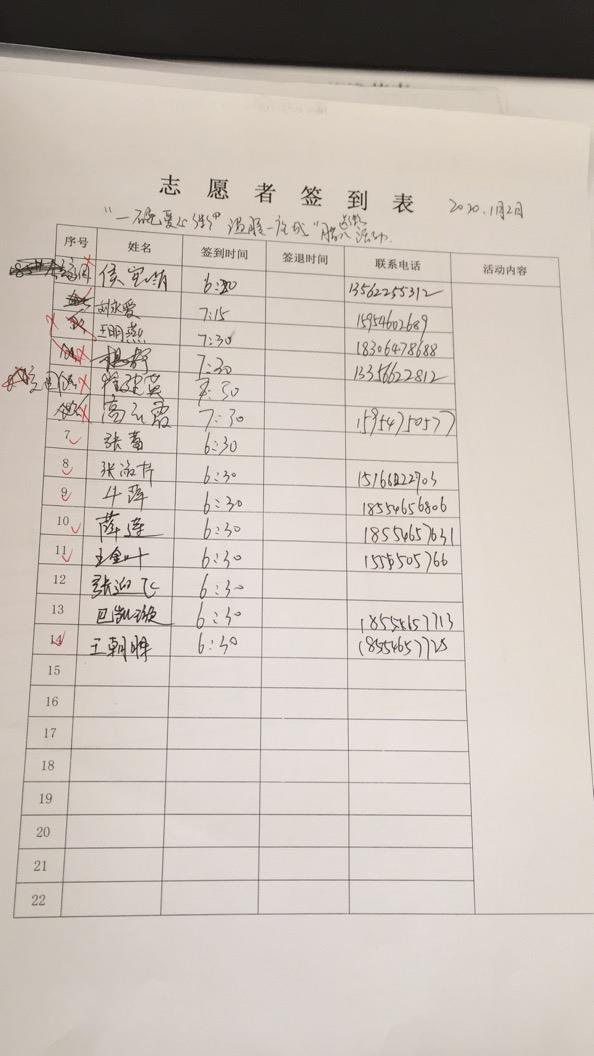 志愿者签到表 2020.1月2日
"一碗爱心粥 温暖一座城" 活动.
序号 姓名 签到时间 签退时间 联系电话 活动内容
6:30 13562255312
刘永爱 7:15 15954602689
王明燕 7:30 18306478688
杨静 7:30 13356622812
7:30
高云霞 7:30 15954750577
7 张菊 6:30
8 张 6:30
9 牛萍 6:30 18554656806
10 薛莲 6:30 18554657631
11 王金叶 6:30
12 张迎飞 6:30
13 6:30 18554657713
14 王朝晖 6:30 18554657725
15
16
17
18
19
20
21
22